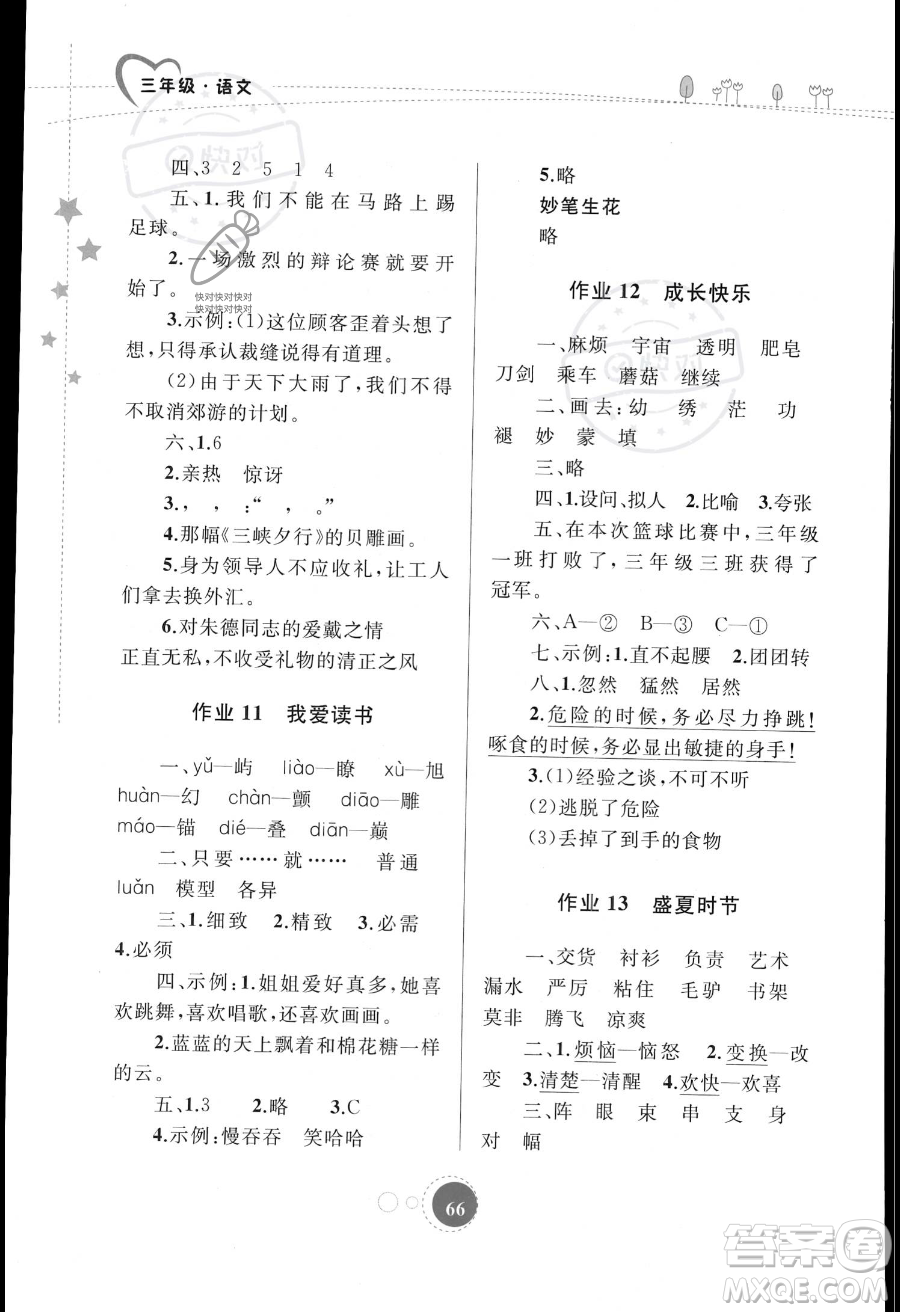 三年级·语文
四、3 2 5 1 4
五、1.我们不能在马路上踢
足球。
2.一场激烈的辩论赛就要开
始了。
快对快对快对
快对快对快对
3.示例:(1)这位顾客歪着头想了
想,只得承认裁缝说得有道理。
(2)由于天下大雨了,我们不得
不取消郊游的计划。
六、1.6
2.亲热 惊讶
3., ,:“ , 。”
4.那幅《三峡夕行》的贝雕画。
5.身为领导人不应收礼,让工人
们拿去换外汇。
6.对朱德同志的爱戴之情
正直无私,不收受礼物的清正之风
作业 11 我爱读书
一、yǔ—屿 liào—瞭 xù—旭
huàn—幻 chàn—颤 diāo—雕
máo—锚 dié—叠 diān—巅
二、只要……就…… 普通
luǎn 模型 各异
三、1.细致 2.精致 3.必需
4.必须
四、示例:1.姐姐爱好真多,她喜
欢跳舞,喜欢唱歌,还喜欢画画。
2.蓝蓝的天上飘着和棉花糖一样
的云。
五、1.3 2.略 3.C
4.示例:慢吞吞 笑哈哈
5.略
妙笔生花
略
作业 12 成长快乐
一、麻烦 宇宙 透明 肥皂
刀剑 乘车 蘑菇 继续
二、画去:幼 绣 茫 功
褪 妙 蒙 填
三、略
四、1.设问、拟人 2.比喻 3.夸张
五、在本次篮球比赛中,三年级
一班打败了,三年级三班获得了
冠军。
六、A—② B—③ C—①
七、示例:1.直不起腰 2.团团转
八、1.忽然 猛然 居然
2.危险的时候,务必尽力挣跳!
啄食的时候,务必显出敏捷的身手!
3.(1)经验之谈,不可不听
(2)逃脱了危险
(3)丢掉了到手的食物
作业 13 盛夏时节
一、交货 衬衫 负责 艺术
漏水 严厉 粘住 毛驴 书架
莫非 腾飞 凉爽
二、1.烦恼—恼怒 2.变换—改
变 3.清楚—清醒 4.欢快—欢喜
三、阵 眼 束 串 支 身
对 幅
66
快对
快对
答案圈
MXQE.COM